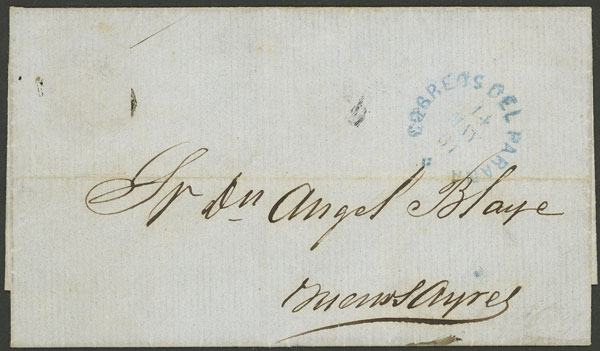 CORREOS DEL PARANA
14
Sr Dn Angel Blaye
Buenos Ayres